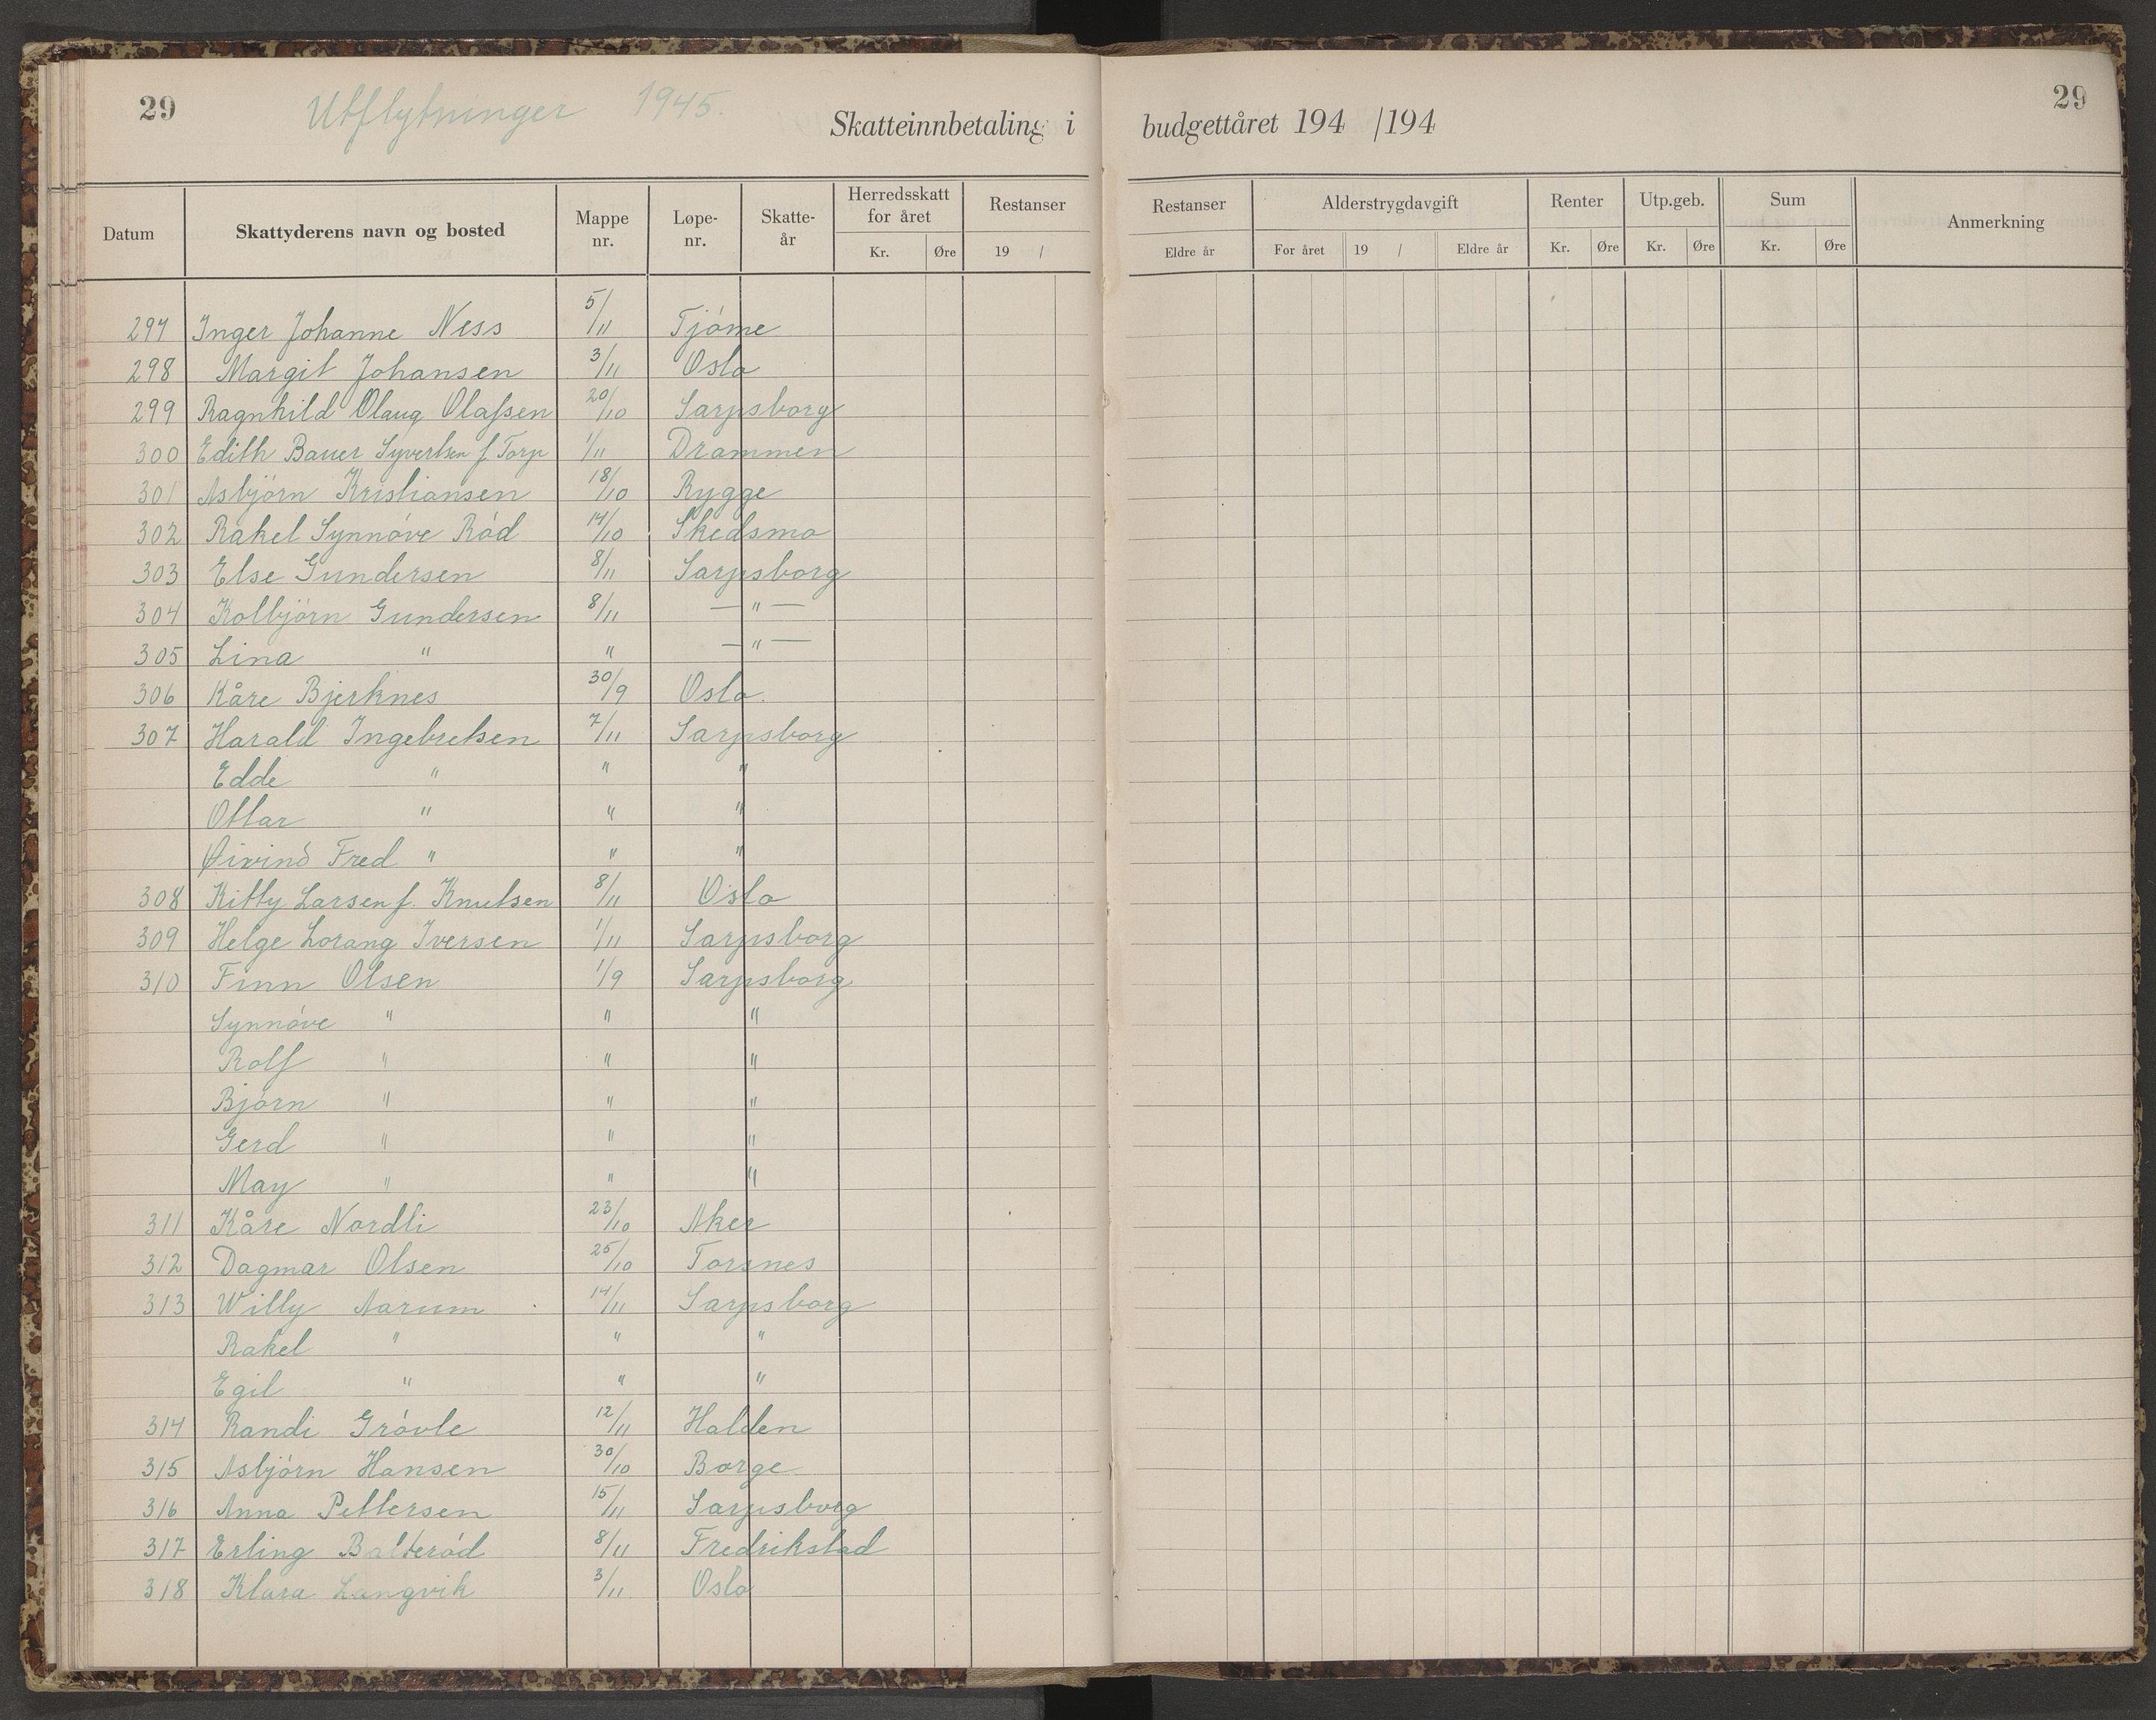 29 Utflytninger 1945. Skatteinnbetaling i budgettåret 194 /194 29
Datum Skattyderens navn og bosted Mappe nr. Løpe- nr. Skatte- år Herredsskatt for året Kr. Øre Restanser 19 / Restanser Eldre år Alderstrygdavgift For året 19 / Eldre år Renter Kr. Øre Utp.geb. Kr. Øre Sum Kr. Øre Anmerkning
297 Inger Johanne Ness 5/11 Tjóme
298 Margit Johansen 3/11 Oslo
299 Ragnhild Olaug Olafsen 20/10 Sarpsborg
300 Edith Bauer Syvertsen f. Torp 1/11 Drammen
301 Asbjórn Kristiansen 18/10 Rygge
302 Rakel Synnóve Ród 14/10 Skedsmo
303 Else Gundersen 8/11 Sarpsborg
304 Kolbjórn Gundersen 8/11 — " —
305 Lina " " — " —
306 Kåre Bjerknes 30/9 Oslo.
307 Harald Ingebretsen 7/11 Sarpsborg
Edde " " "
Ottar " " "
Øivind Fred " " "
308 Kitty Larsen f. Knutsen 8/11 Oslo
309 Helge Lorang Iversen 1/11 Sarpsborg
310 Finn Olsen 1/9 Sarpsborg
Synnóve " " "
Rolf " " "
Bjórn " " "
Gerd " " "
May " " "
311 Kåre Nordli 23/10 Aker
312 Dagmar Olsen 25/10 Torsnes
313 Willy Aarum 14/11 Sarpsborg
Rakel " " "
Egil " " "
314 Randi Gróvle 12/11 Halden
315 Asbjórn Hansen 30/10 Borge
316 Anna Pettersen 15/11 Sarpsborg
317 Erling Balteród 8/11 Fredrikstad
318 Klara Langvik 3/11 Oslo